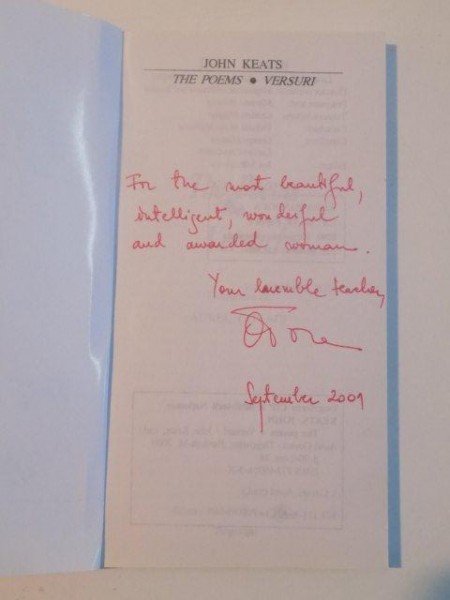 JOHN KEATS
THE POEMS • VERSURI
For the most beautiful,
intelligent, wonderful
and awarded woman.
Your humble teacher,
September 2001